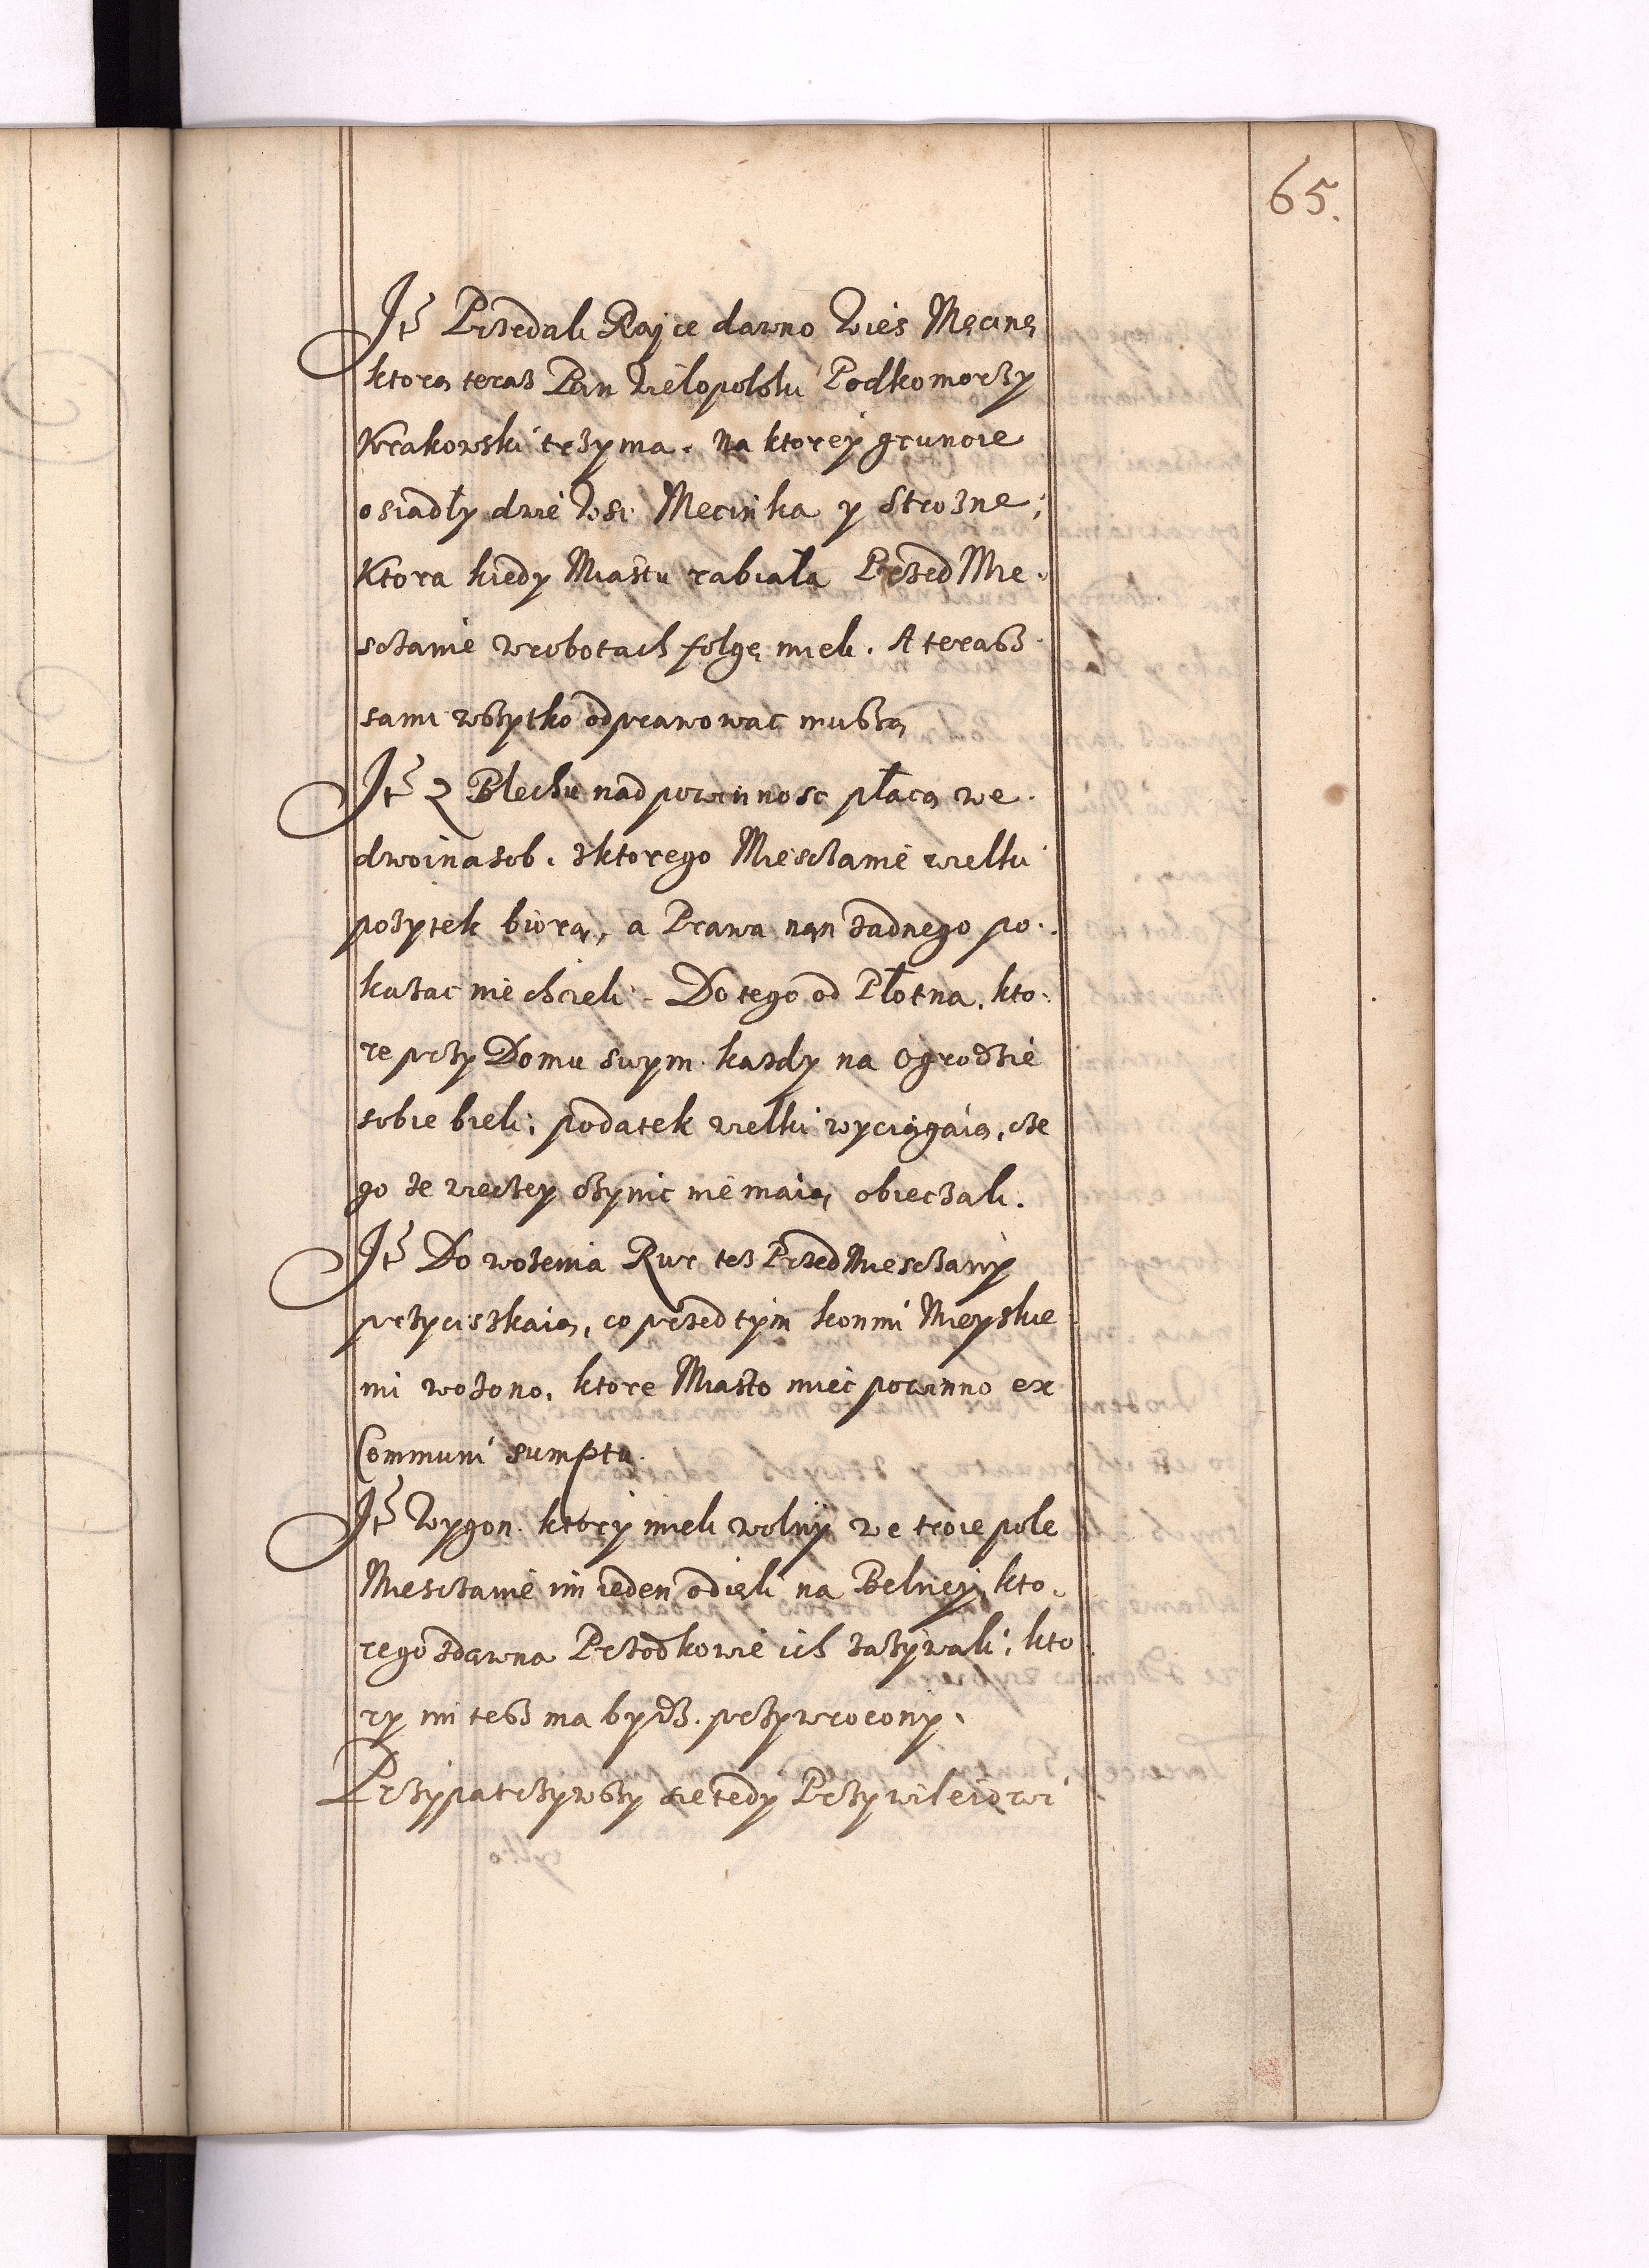 65.
Itē Przedali Rajce dawno Wies Męcinę
ktorą teraz Pan Wielopolski Podkomorzy
Krakowski trzyma. Na ktorey gruncie
osiadły dwie Wsi Mecinka y Strozne;
Ktora kiedy Miastu rabiała Przed Mie.
sczanie w robotach folgę mieli. A terasz
sami wszytko odprawowac muszą
Itē z Blechu nad powinnosc płacą we.
dwoinasob. z ktorego Miesczanie wielki
pozytek biorą, a Prawa nan zadnego po.
kazac nie chcieli. Do tego od Płotna, kto.
re przy Domu swym kazdy na Ogrodzie
sobie bieli; podatek wielki wyciągaią, cze
go ze wieczey czynic nie maią obieczali.
Itē Do wozenia Rur tez PrzedMiesczany
przyciszkaią, co przed tym konmi Mieyskie
mi wozono, ktore Miasto miec powinno ex
Communi sumptu.
Itē Wygon ktory mieli wolny we troie pole
Miesczanie im ieden odieli na Belnej, kto.
rego zdawna Przodkowie ich zazywali; kto
ry im tesz ma bydz. przywrocony.
Przypatrzywszy sie tedy Przywileiowi